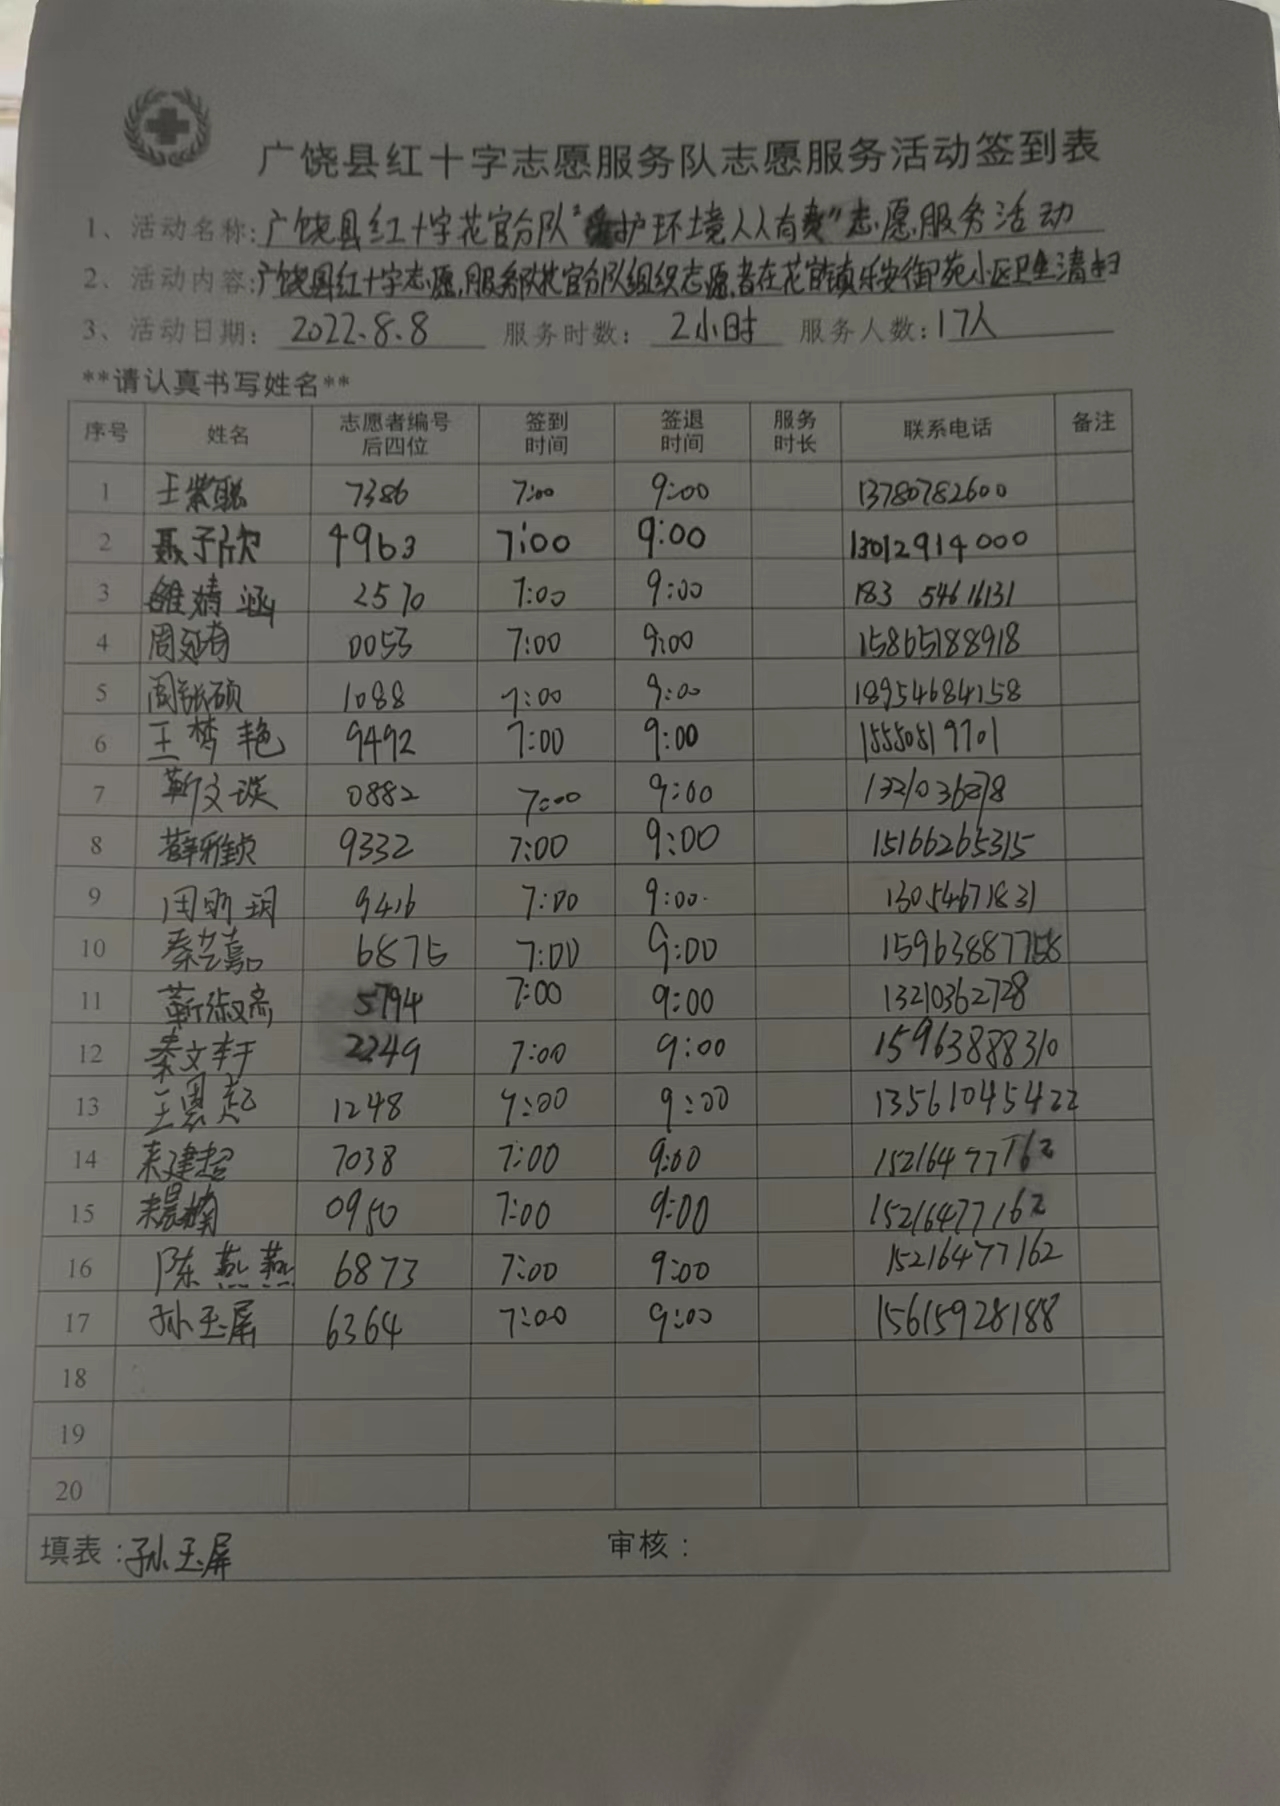 广饶县红十字志愿服务队志愿服务活动签到表
1、活动名称:广饶县红十字花官分队"爱护环境人人有责"志愿服务活动
2、活动内容:广饶县红十字志愿服务队花官分队组织志愿者在花官镇乐安御苑小区卫生清扫
3、活动日期: 2022.8.8 服务时数: 2小时 服务人数:17人
**请认真书写姓名**
序号 姓名 志愿者编号后四位 签到时间 签退时间 服务时长 联系电话 备注
1 王紫聪 7386 7:00 9:00 13780782600
2 聂子欣 4963 7:00 9:00 13012914000
3 婧涵 2570 7:00 9:00 183 54616131
4 周延有 0053 7:00 9:00 15865188918
5 周钰硕 1088 7:00 9:00 18954684158
6 王梦艳 9492 7:00 9:00 15550519701
7 靳文瑛 0882 7:00 9:00
8 薛雅贞 9332 7:00 9:00 15166265315
9 玥 9416 7:00 9:00 13054671831
10 秦艺嘉 6875 7:00 9:00 15963887758
11 靳淑 5794 7:00 9:00 13210362728
12 秦文轩 2249 7:00 9:00 15963888310
13 王 1248 9:00 9:00 13561045422
14 来建超 7038 7:00 9:00 15216477162
15 来晨楠 0950 7:00 9:00 15216477162
16 陈燕燕 6873 7:00 9:00 15216477162
17 孙玉屏 6364 7:00 9:00 15615928188
18
19
20
填表:孙玉屏 审核: